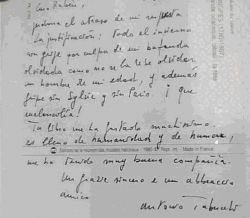 Caro Rubén,
perdona el atraso de mi respuesta
La justificación: Todo el invierno
con gripe por culpa de mi bufanda
olvidada como no se la debe olvidar
un hombre de mi edad, y además
gripe sin Sylvie y sin Paris. ¡que
melancolía!
Tu libro me ha gustado muchísimo.
es lleno de humanidad y de humour,
me ha tenido muy buena compañía.
Un grazie sincero e un abbraccio
amico
Antonio Tabucchi